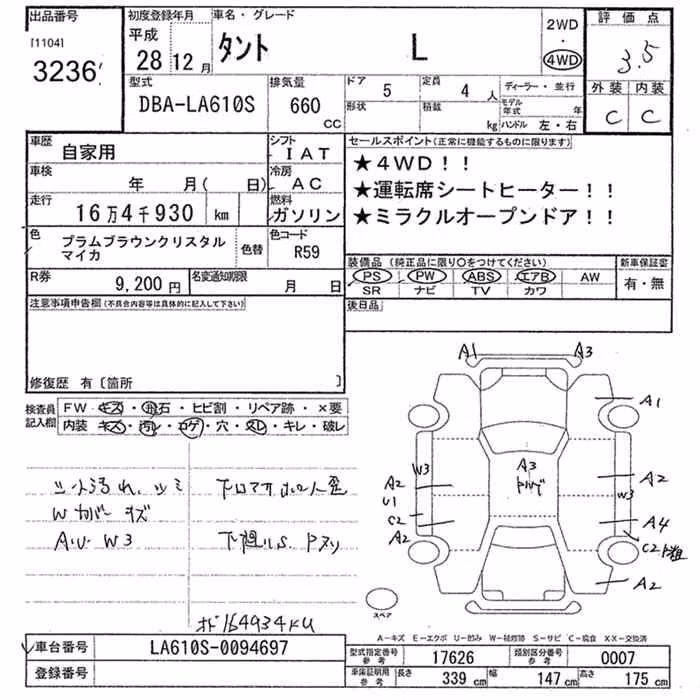 出品番号
[1104]
3236
初度登録年月
平成
28 12 月
車名・グレード
タント L
2WD
・
4WD
評価点
3.5
外装 内装
C C
型式
DBA-LA610S
排気量
660
cc
ドア
5
定員
4 人
形状
積載
kg
ディーラー・並行
モデル年式 年
ハンドル 左・右
車歴
自家用
シフト
IAT
車検
年 月( 日)
冷房
AC
走行
16万4千930 km
燃料
ガソリン
色
プラムブラウンクリスタル
マイカ
色替
色コード
R59
R券
9,200 円
名変通知期限
月 日
セールスポイント(正常に機能するものに限ります)
★4WD!!
★運転席シートヒーター!!
★ミラクルオープンドア!!
装備品 (純正品に限り○をつけてください)
PS PW ABS エアB AW
SR ナビ TV カワ
新車保証書
有・無
後日品
注意事項申告欄(不具合内容等は具体的に記入して下さい)
修復歴 有〔箇所 〕
検査員
記入欄
FW キズ・飛石・ヒビ割・リペア跡・×要
内装 キズ・汚れ・コゲ・穴・スレ・キレ・破レ
シート汚れ、シミ
Wカバー キズ
W3
A1 A3
A1
W3
A2
U1
C2
A2
A3
A2
W3
A4
C2
A2
スペア
164934km
A-キズ E-エクボ U-凹み W-補修跡 S-サビ C-腐食 XX-交換済
車台番号
LA610S-0094697
登録番号
型式指定番号
参考
17626
類別区分番号
参考
0007
車庫証明用
参考
長さ 339 cm 幅 147 cm 高さ 175 cm